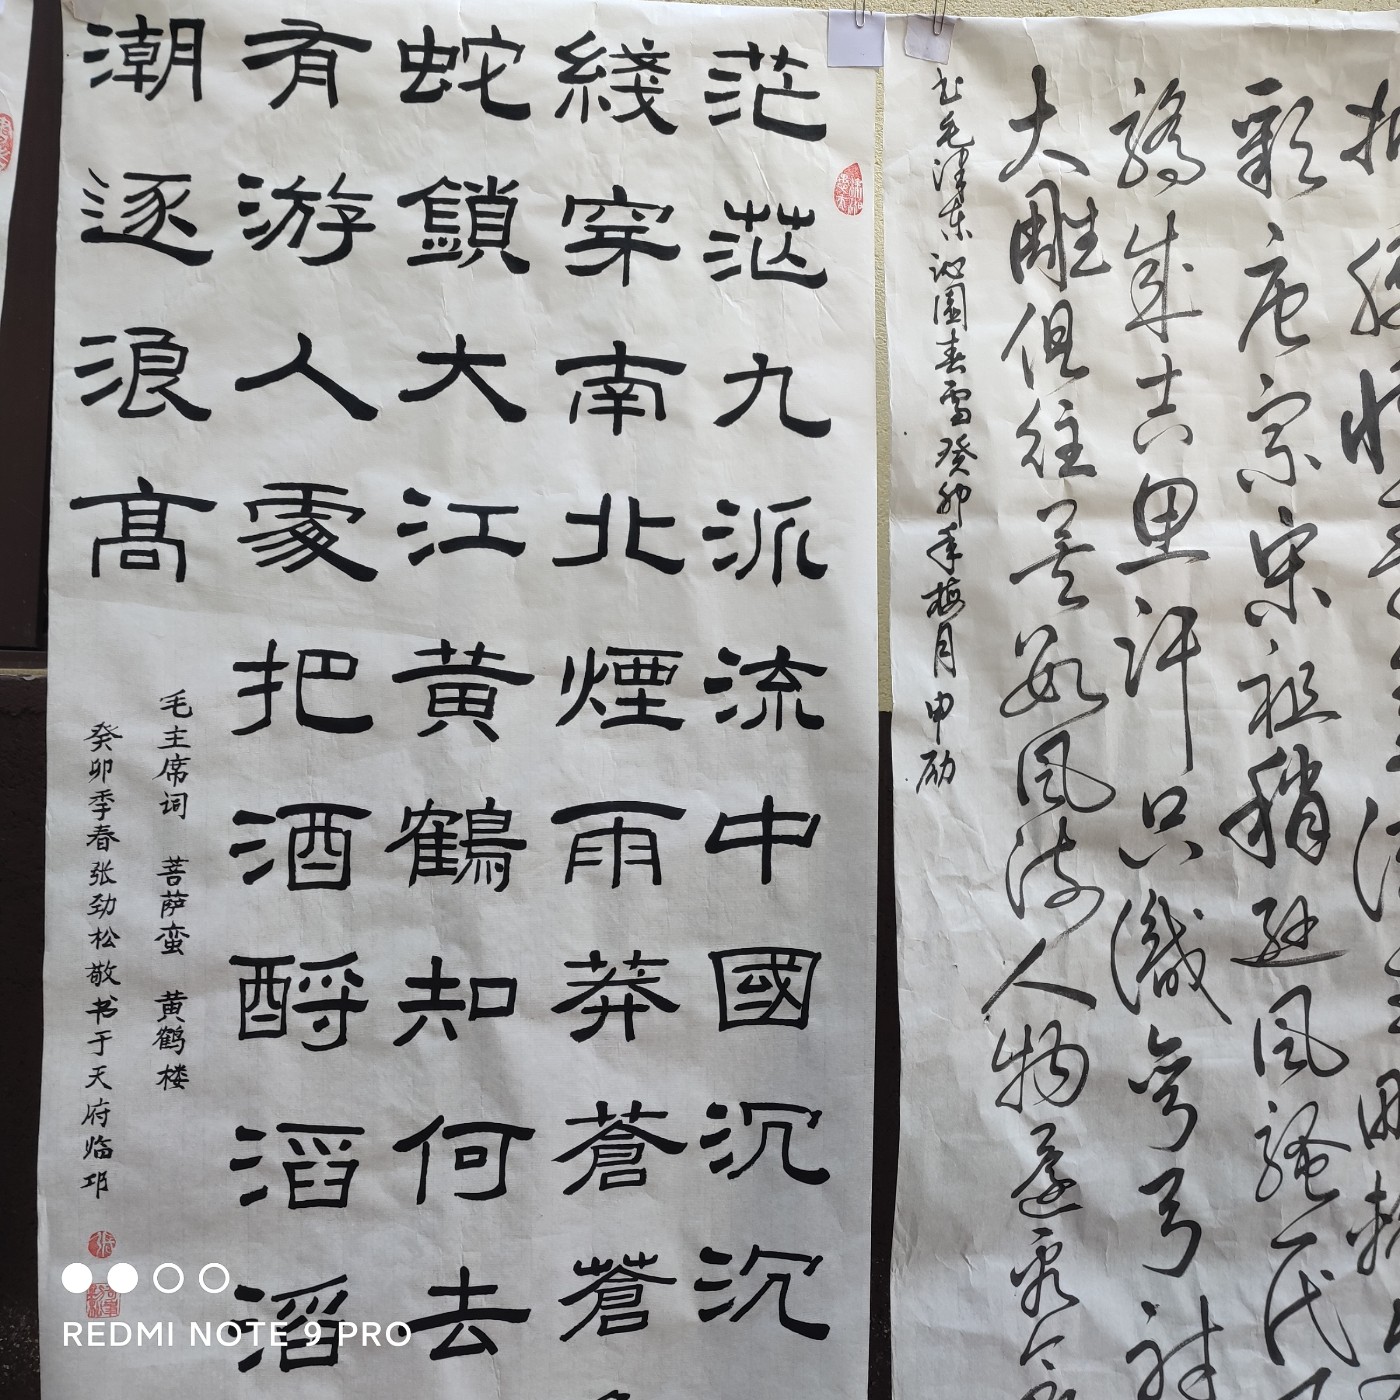 茫茫九派流中國沉沉
綫穿南北煙雨莽蒼蒼
蛇鎖大江黃鶴知何去
有游人處把酒酹滔滔
潮逐浪高
毛主席词 菩萨蛮 黄鹤楼
癸卯季春张劲松敬书于天府临邛
彩唐宗宋祖稍逊风骚一代
骄成吉思汗只識弯弓射
大雕俱往矣数风流人物还看今
书毛泽东沁园春雪癸卯年梅月申励
REDMI NOTE 9 PRO